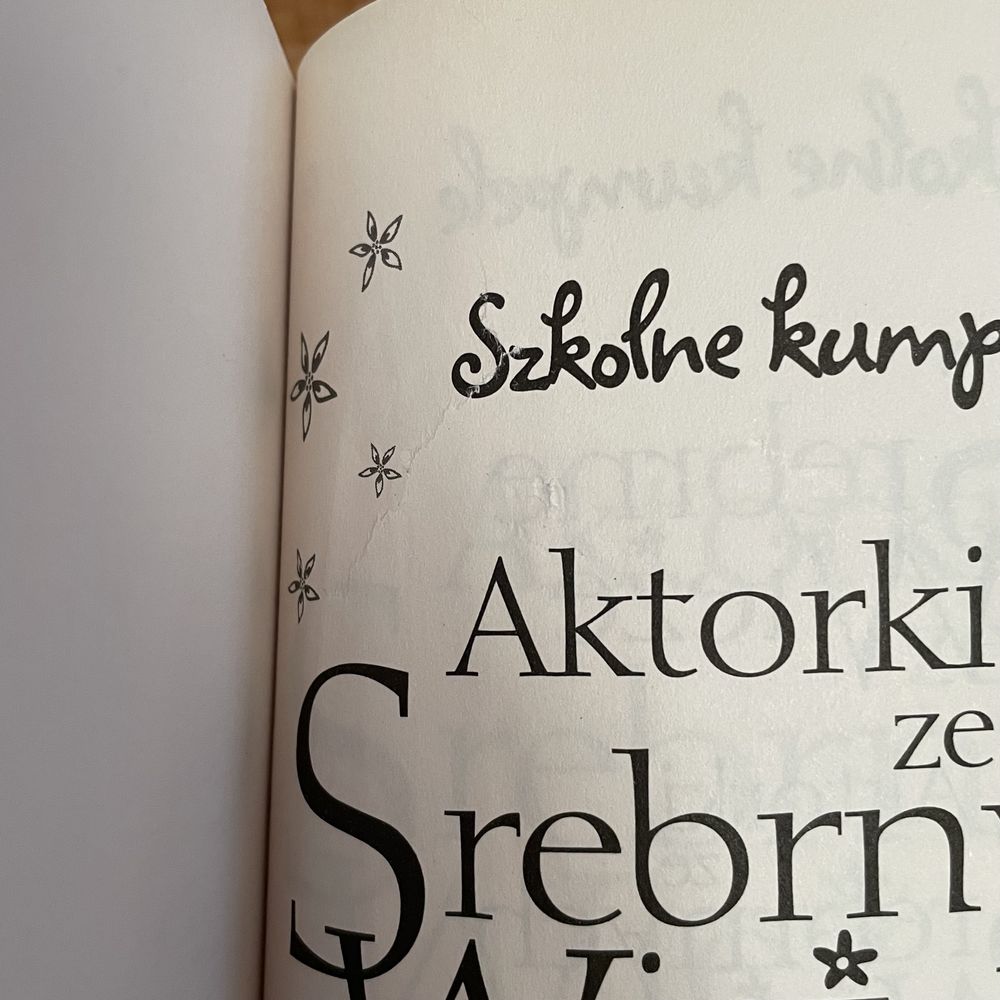 Szkolne kump
Aktorki
ze
Srebrny